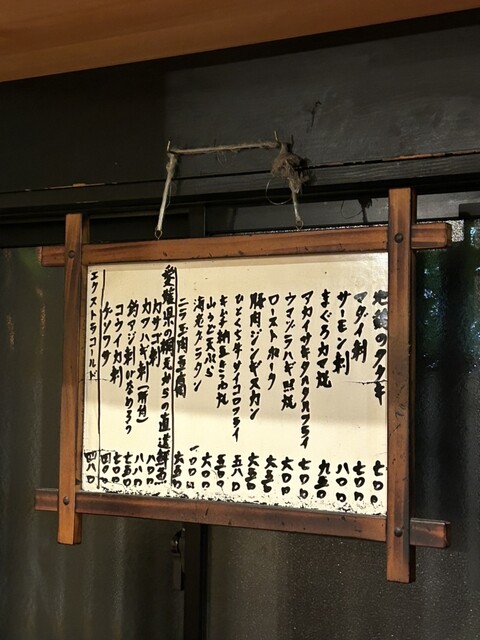 地鶏のタタキ 七〇〇
マダイ刺 七〇〇
サーモン刺 八〇〇
まぐろカマ焼 九五〇
アカイサキタルタルフライ 七〇〇
ウマヅラハギ照焼 六〇〇
ローストポーク 六五〇
豚肉ジンギスカン 六五〇
ひとくち牛サイコロフライ 五八〇
キムチ納豆きつね焼 五五〇
山かど天ぷら 六〇〇
海老グラタン 一〇〇〇
ニラ玉肉豆腐 六五〇
愛媛県の網元からの直送鮮魚
カサゴ刺 八〇〇
カワハギ刺(肝付) 八八〇
釣アジ刺 七五〇
コウイカ刺 七〇〇
チヂワサ 四〇〇
エクストラコールド 四八〇